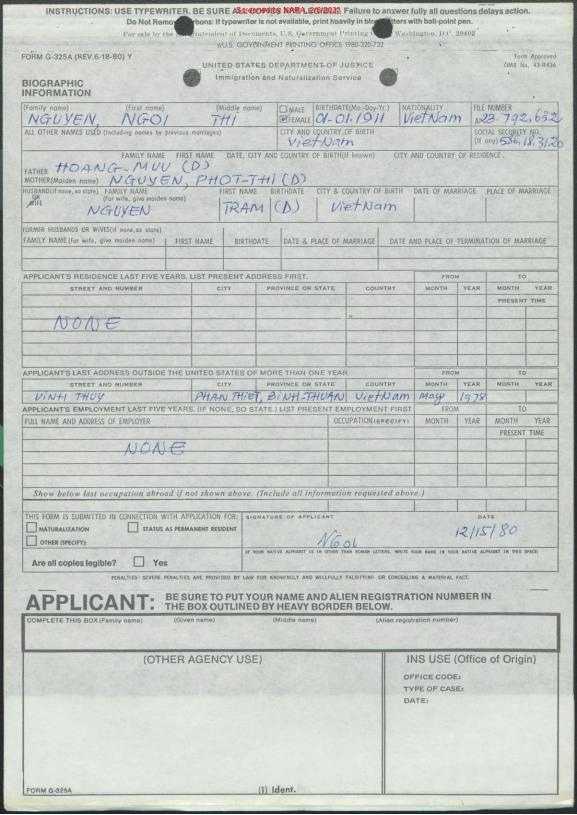 INSTRUCTIONS: USE TYPEWRITER. BE SURE ALL COPIES ARE LEGIBLE. Failure to answer fully all questions delays action.
Do Not Remove Carbons: If typewriter is not available, print heavily in block letters with ball-point pen.
For sale by the Superintendent of Documents, U.S. Government Printing Office Washington, D.C. 20402
U.S. GOVERNMENT PRINTING OFFICE 1980-320-732
FORM G-325A (REV.6-18-80) Y
UNITED STATES DEPARTMENT OF JUSTICE
Immigration and Naturalization Service
Form Approved
OMB No. 43-R436
BIOGRAPHIC
INFORMATION
(Family name) (First name) (Middle name) MALE FEMALE BIRTHDATE(Mo.-Day-Yr.) NATIONALITY FILE NUMBER
NGUYEN, NGOI THI 01-01-1911 VietNam A23.792,632
ALL OTHER NAMES USED (Including names by previous marriages) CITY AND COUNTRY OF BIRTH SOCIAL SECURITY NO.
VietNam (If any) 586,18,3120
FAMILY NAME FIRST NAME DATE, CITY AND COUNTRY OF BIRTH(If known) CITY AND COUNTRY OF RESIDENCE.
FATHER HOANG-MUU (D)
MOTHER(Maiden name) NGUYEN, PHOT-THI (D)
HUSBAND(If none, so state) OR WIFE FAMILY NAME (For wife, give maiden name) FIRST NAME BIRTHDATE CITY & COUNTRY OF BIRTH DATE OF MARRIAGE PLACE OF MARRIAGE
NGUYEN TRAM (D) VietNam
FORMER HUSBANDS OR WIVES(if none,so state)
FAMILY NAME (For wife, give maiden name) FIRST NAME BIRTHDATE DATE & PLACE OF MARRIAGE DATE AND PLACE OF TERMINATION OF MARRIAGE
APPLICANT'S RESIDENCE LAST FIVE YEARS. LIST PRESENT ADDRESS FIRST. FROM TO
STREET AND NUMBER CITY PROVINCE OR STATE COUNTRY MONTH YEAR MONTH YEAR
PRESENT TIME
NONE
APPLICANT'S LAST ADDRESS OUTSIDE THE UNITED STATES OF MORE THAN ONE YEAR FROM TO
STREET AND NUMBER CITY PROVINCE OR STATE COUNTRY MONTH YEAR MONTH YEAR
VINH THUY PHAN THIET, BINH-THUAN VietNam May 1978
APPLICANT'S EMPLOYMENT LAST FIVE YEARS. (IF NONE, SO STATE.) LIST PRESENT EMPLOYMENT FIRST FROM TO
FULL NAME AND ADDRESS OF EMPLOYER OCCUPATION(SPECIFY) MONTH YEAR MONTH YEAR
PRESENT TIME
NONE
Show below last occupation abroad if not shown above. (Include all information requested above.)
THIS FORM IS SUBMITTED IN CONNECTION WITH APPLICATION FOR: SIGNATURE OF APPLICANT DATE
NATURALIZATION STATUS AS PERMANENT RESIDENT
OTHER (SPECIFY):
NGOI 12/15/80
IF YOUR NATIVE ALPHABET IS IN OTHER THAN ROMAN LETTERS, WRITE YOUR NAME IN YOUR NATIVE ALPHABET IN THIS SPACE
Are all copies legible? Yes
PENALTIES: SEVERE PENALTIES ARE PROVIDED BY LAW FOR KNOWINGLY AND WILLFULLY FALSIFYING OR CONCEALING A MATERIAL FACT.
APPLICANT: BE SURE TO PUT YOUR NAME AND ALIEN REGISTRATION NUMBER IN
THE BOX OUTLINED BY HEAVY BORDER BELOW.
COMPLETE THIS BOX (Family name) (Given name) (Middle name) (Alien registration number)
(OTHER AGENCY USE) INS USE (Office of Origin)
OFFICE CODE:
TYPE OF CASE:
DATE:
FORM G-325A (1) Ident.